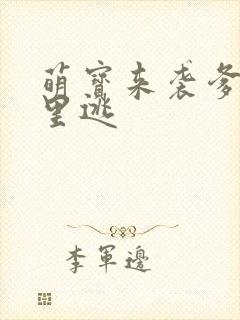 萌寶來袭爹
里逃
李軍邊